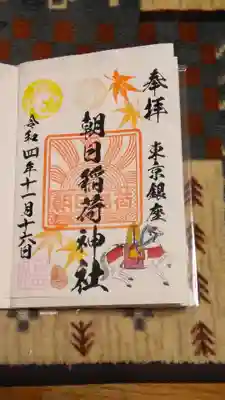 奉拝
東京銀座
朝日稲荷神社
令和四年十一月十六日